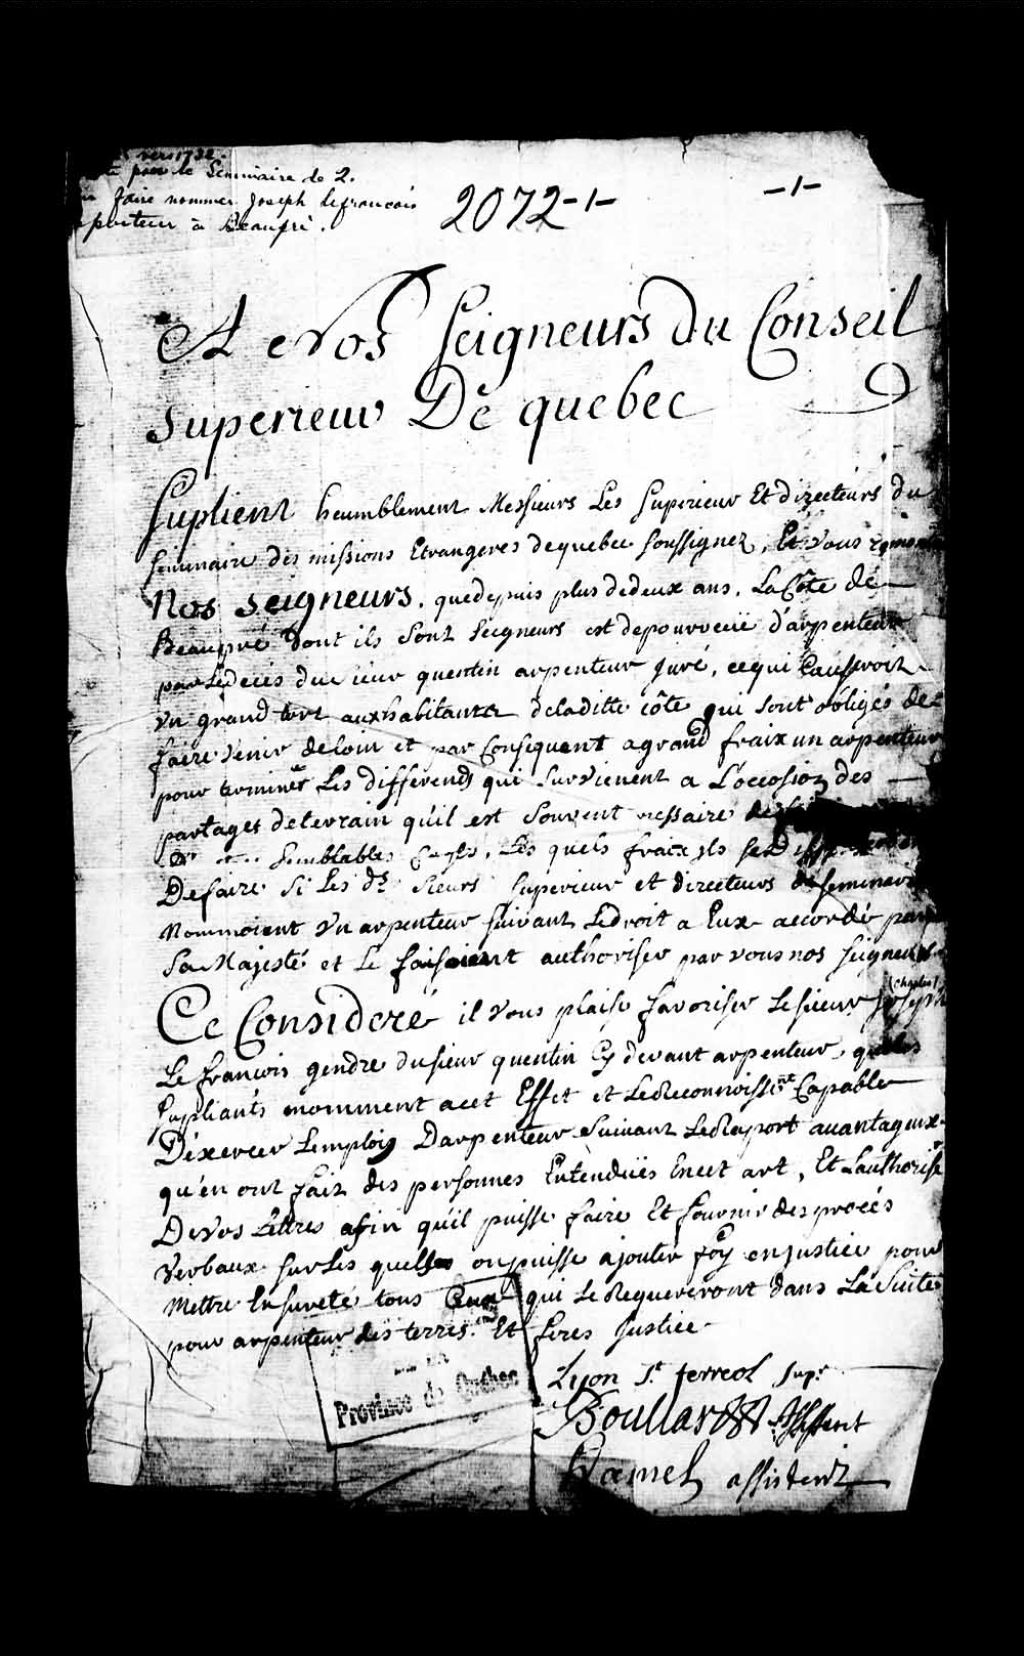 vers 1732.
par le Seminaire de Q.
faire nommer Joseph lefrancois
arpenteur à Beaupré.
2072-1-
-1-
A Nos Seigneurs du Conseil
Superieur De quebec
Suplient heumblement Messieurs Les Superieur Et directeurs du
seminaire des missions Etrangeres dequebec soussignez, Et vous
Nos Seigneurs, quedepuis plus dedeux ans, La Côte de
Beaupré dont ils sont seigneurs est depourveüe d'arpenteur
par Ledeces du sieur quentin arpenteur juré, cequi
un grand tort auxhabitants deladitte côte qui sont obligés de
faire venir deloin et par Consequent agrand fraix un arpenteur
pour terminer Les differends qui surviennent a L'occasion des
partages deterrain qu'il est souvent nessaire de
semblables Les quels fraix ils se
Defaire si les ds. sieurs superieur et directeurs du seminaire
Nommoient un arpenteur suivant Ledroit a Eux accordé par
Sa Majesté et Le faisoient authoriser par vous nos seigneurs
(Charles)
Ce Consideré il vous plaise favoriser Lesieur Joseph
Le francois gendre dusieur quentin Cy devant arpenteur, que les
supliants nomment acet Effet et LeReconnoissent Capable
Déxercer Lemploy Darpenteur suivant LeRaport avantageux
qu'en ont fait des personnes Entendües Encet art, Et Lauthoriser
De vos Lettres afin qu'il puisse faire Et fournir des procés
verbaux surles quelles onpuisse ajouter foy enjustice pour
Mettre En sureté tous Ceux qui Le Requereront dans La Suite
pour arpenteur des terres. Et feres justice
Lyon St. ferreol supr.
Boullard Assistent
Hamel assistent
Province de Québec